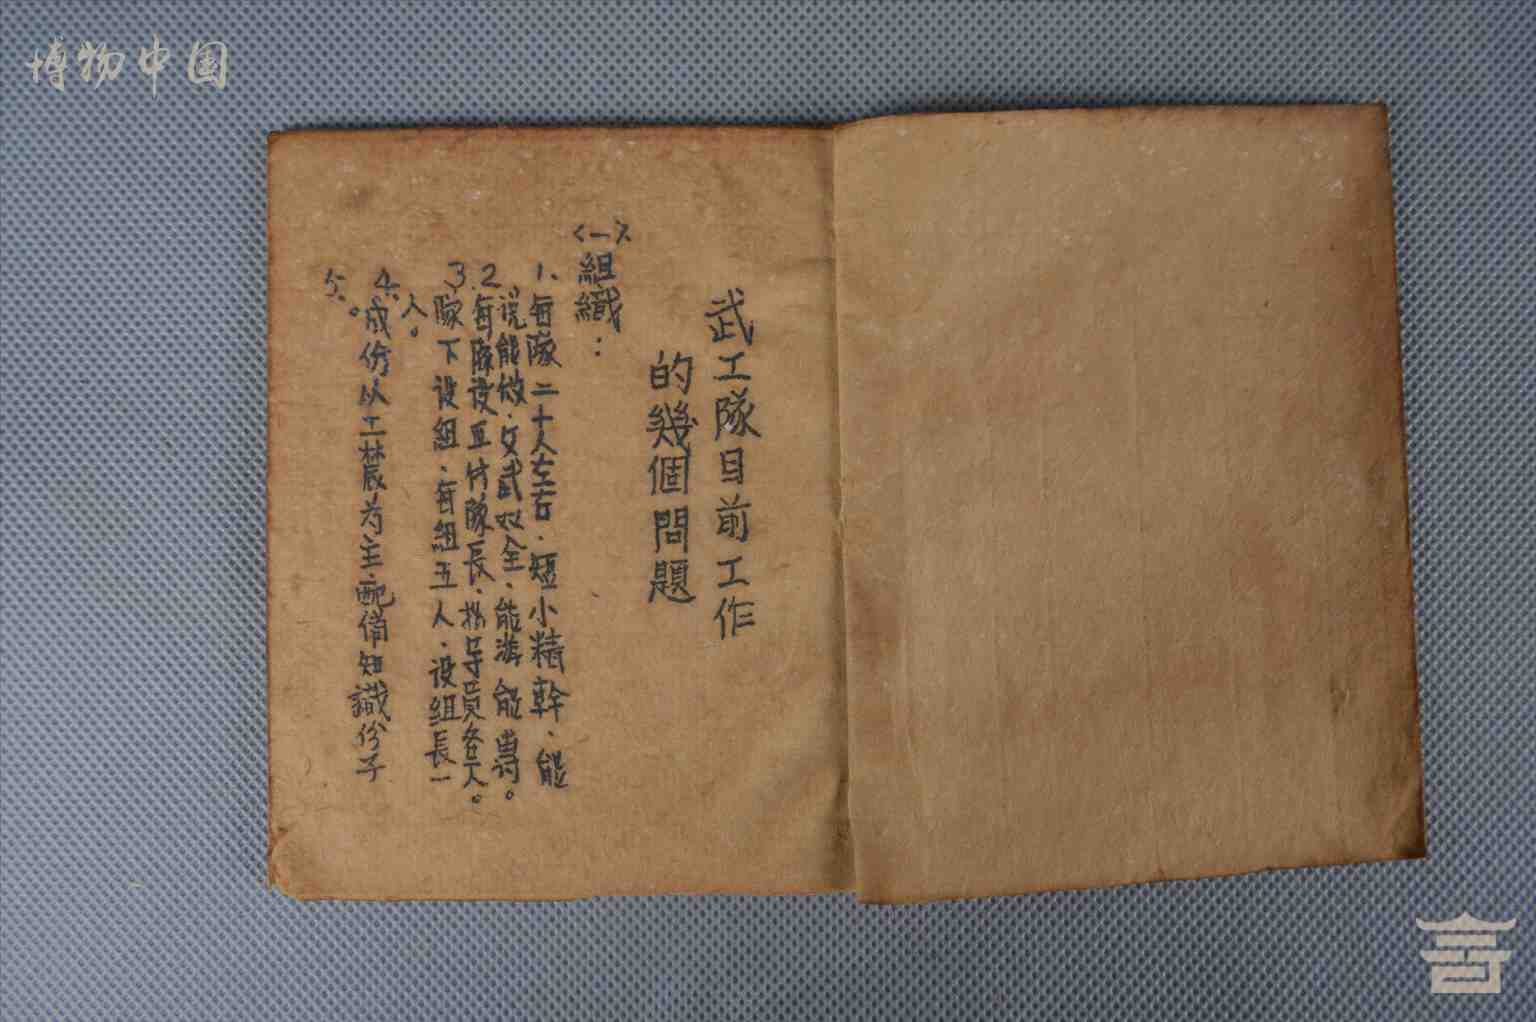 博物中国
武工隊目前工作
的幾個問題
<一>組織：
1、每隊二十人左右．短小精幹、能
说能做．文武双全、能游能击。
2、每隊设正付隊長、指导員各一人。
3、隊下设組、每組五人、设組長一
人。
4、成份以工農为主、配備知識份子
5、。